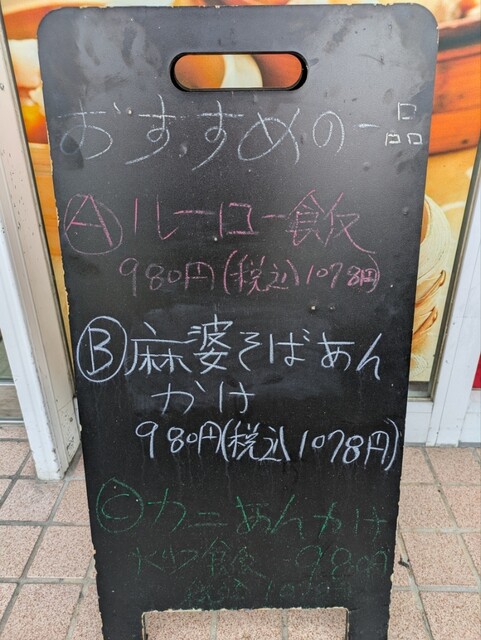 おすすめの一品
Ⓐルーロー飯
980円(税込1078円)
Ⓑ麻婆そばあん
かけ
980円(税込1078円)
Ⓒカニあんかけ
飯 980円
税込